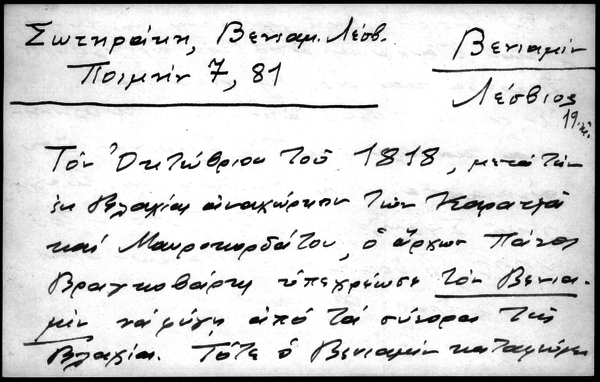 Σωτηράκη, Βενιαμ. Λέσβ.
Ποιμήν 7, 81
Βενιαμίν
Λέσβιος
19
Τον Ὀκτώβριον τοῦ 1818, μετά τήν
ἐκ Βλαχίας ἀναχώρησιν των Καρατζᾶ
καί Μαυροκορδάτου, ὁ ἄρχων Πάνος
ὑπεχρέωσε τόν Βενια-
μίν νά φύγῃ ἀπό τά σύνορα τῆς
Βλαχίας. Τότε ὁ Βενιαμίν καταφεύγει